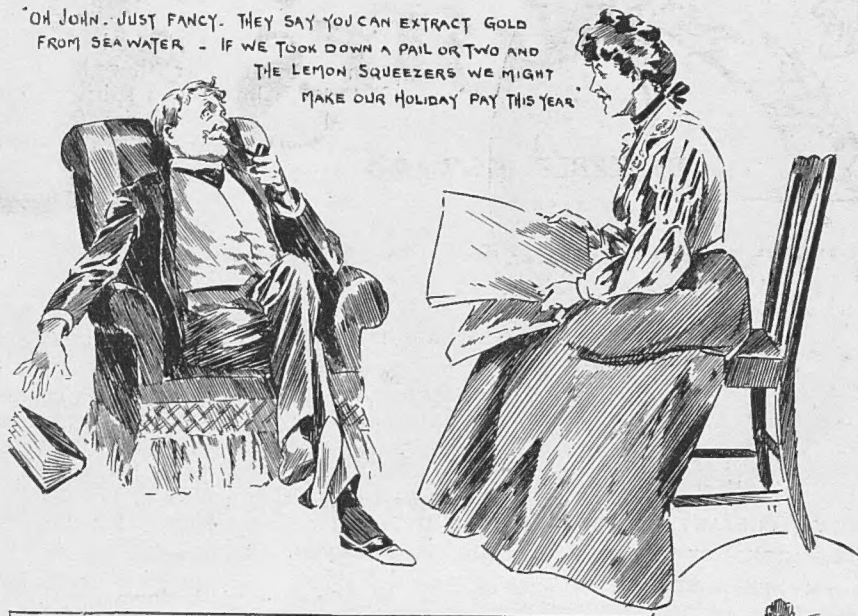 "OH JOHN. JUST FANCY. THEY SAY YOU CAN EXTRACT GOLD
FROM SEA WATER - IF WE TOOK DOWN A PAIL OR TWO AND
THE LEMON SQUEEZERS WE MIGHT
MAKE OUR HOLIDAY PAY THIS YEAR"